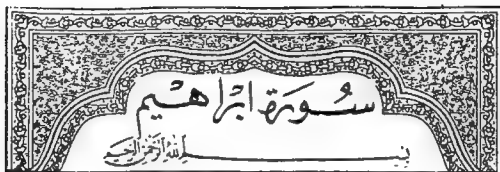 سُورَة ابْرَاهِيم
بِسْمِ اللَّهِ الرَّحْمَنِ الرَّحِيمِ